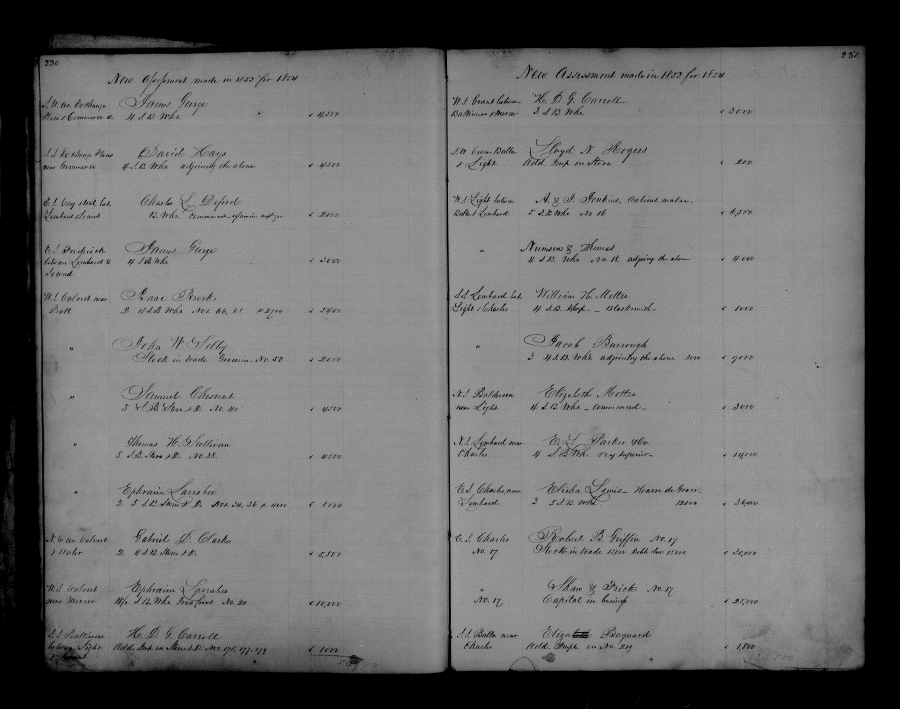 230
New Assessment made in 1853 for 1854
S.W. Cor Exchange James George
Place & Commerce st 4 S B Whs $ 4,500
S.S. Exchange Place David Hays
near Commerce 4 S B Whs adjoining the above $ 4500
Charles L Deford
Lombard & Second B. Whs $ 2000
E.S. Frederick James George
between Lombard & 4 S B Whs $ 3000
Second
W.S. Calvert near Isaac Brook
Pratt 2 4 S B Whs Nos. 66, $ 5400
" John W Selby
Stock in trade Groceries No. 50 $ 2000
" Samuel Chesnut
5 S. B. Store & D. No. 40 $ 4500
" Thomas W. Sullivan
5 S. B. Store & D. No. 38 $ 4500
" Ephraim Larrabee
2 5 S B Stores & D. Nos. 34, 36 @ 4000 $ 8000
N.W. Cor Calvert Gabriel D. Clark
& Water 2 4 S B Stores & D. $ 5500
W.S. Calvert Ephraim Larrabee
near Mercer S. B. Whs Iron front No. 20 $ 10,000
S.S. Baltimore H. D. G. Carroll
between Light Adds. Imp. in Stores & D. Nos. 175, 177, 179 $ 1000
& Grant
231
New Assessment made in 1853 for 1854
W.S. Grant between H. D. G. Carroll
Baltimore & Mercer 3 S B. Whs $ 3000
S.W. Corner Balto Lloyd N. Rogers
& Light Add. Imp. on Store $ 200
W.S. Light between A. & J. Jenkins, Cabinet makers
Balto & Lombard 5 S B Whs No 16 $ 6,500
" Numsen & Thomas
4 S. B. Whs No. 18. adjoing the above $ 4000
S.S. Lombard bet. William H. Mettee
Light & Charles 4 S. B. Shop — Blacksmith — $ 1000
" Jacob Barrough
3 4 S. B. Whs adjoining the above 3000 $ 9000
N.S. Baltimore Elizabeth Mettee
near Light 4 S. B Whs — commenced — $ 3000
N.S. Lombard near E. L. Parker & Co.
Charles 4 S B Whs very superior — $ 14,000
E.S. Charles near Elisha Lewis — Havre de Grace
Lombard 3 5 S B Whs 12000 $ 36,000
E.S. Charles Robert B. Griffin No. 17
No. 17 Stock in trade $ 30,000
" Shaw & Frick No. 17
No. 17. Capital in business $ 25,000
S.S. Balto near Baynard
Charles Add. Impts on No. 219 $ 1,800